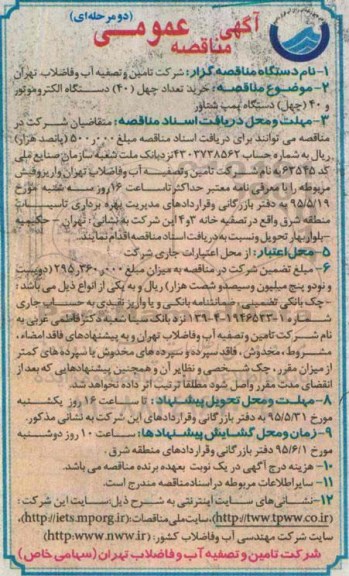 آگهی مناقصه عمومی (دو مرحله‌ای)
۱- نام دستگاه مناقصه گزار: شرکت تامین و تصفیه آب و فاضلاب تهران
۲- موضوع مناقصه: خرید تعداد چهل (۴۰) دستگاه الکتروموتور
و ۴۰ (چهل) دستگاه پمپ شناور
۳- مهلت و محل دریافت اسناد مناقصه: متقاضیان شرکت در
مناقصه می توانند برای دریافت اسناد مناقصه مبلغ ۵۰۰,۰۰۰ (پانصد هزار)
ریال به شماره حساب ۴۳۰۳۷۳۸۵۶۲ نزد بانک ملت شعبه سازمان صنایع ملی
کد ۶۲۵۴۵ به نام شرکت تامین و تصفیه آب و فاضلاب تهران واریز و فیش
مربوطه را با معرفی نامه معتبر حداکثر تا ساعت ۱۶ روز سه شنبه مورخ
۹۵/۵/۱۹ به دفتر بازرگانی و قراردادهای مدیریت بهره برداری تاسیسات
منطقه شرق واقع در تصفیه خانه ۳و۴ این شرکت به نشانی: تهران - حکیمیه
-بلوار بهار تحویل و نسبت به دریافت اسناد مناقصه اقدام نمایند.
۵- محل اعتبار: از محل اعتبارات جاری شرکت
۶- مبلغ تضمین شرکت در مناقصه به میزان مبلغ ۲۹۵,۳۶۰,۰۰۰ (دویست
و نود و پنج میلیون و سیصد و شصت هزار) ریال و به یکی از انواع ذیل می باشد:
-چک بانکی تضمینی، ضمانتنامه بانکی و یا واریز نقدی به حساب جاری
شماره ۱-۱۹۴۶۵۳۳-۴-۱۳۹ نزد بانک سینا شعبه دکتر فاطمی غربی به
نام شرکت تامین و تصفیه آب و فاضلاب تهران و به پیشنهادهای فاقد امضاء،
مشروط، مخدوش، فاقد سپرده و سپرده های مخدوش یا سپرده های کمتر
از میزان مقرر، چک شخصی و نظایر آن و همچنین پیشنهادهایی که بعد از
انقضای مدت مقرر واصل شود مطلقا ترتیب اثر داده نخواهد شد.
۸- مهلت و محل تحویل پیشنهاد: تا ساعت ۱۶ روز یکشنبه
مورخ ۹۵/۵/۳۱ به دفتر بازرگانی و قراردادهای این شرکت به نشانی مذکور.
۹- زمان و محل گشایش پیشنهادها: ساعت ۱۰ روز دوشنبه
مورخ ۹۵/۶/۱ دفتر بازرگانی و قراردادهای منطقه شرق.
۱۰- هزینه درج آگهی در یک نوبت بعهده برنده مناقصه می باشد.
۱۱- سایر اطلاعات مربوطه در اسناد مناقصه مندرج است.
۱۲- نشانی های سایت اینترنتی به شرح ذیل: سایت این شرکت:
(http://tww.tpww.co.ir)، سایت ملی مناقصات: (http://iets.mporg.ir)،
سایت شرکت مهندسی آب و فاضلاب کشور: (http:www.nww.ir)
شرکت تامین و تصفیه آب و فاضلاب تهران (سهامی خاص)